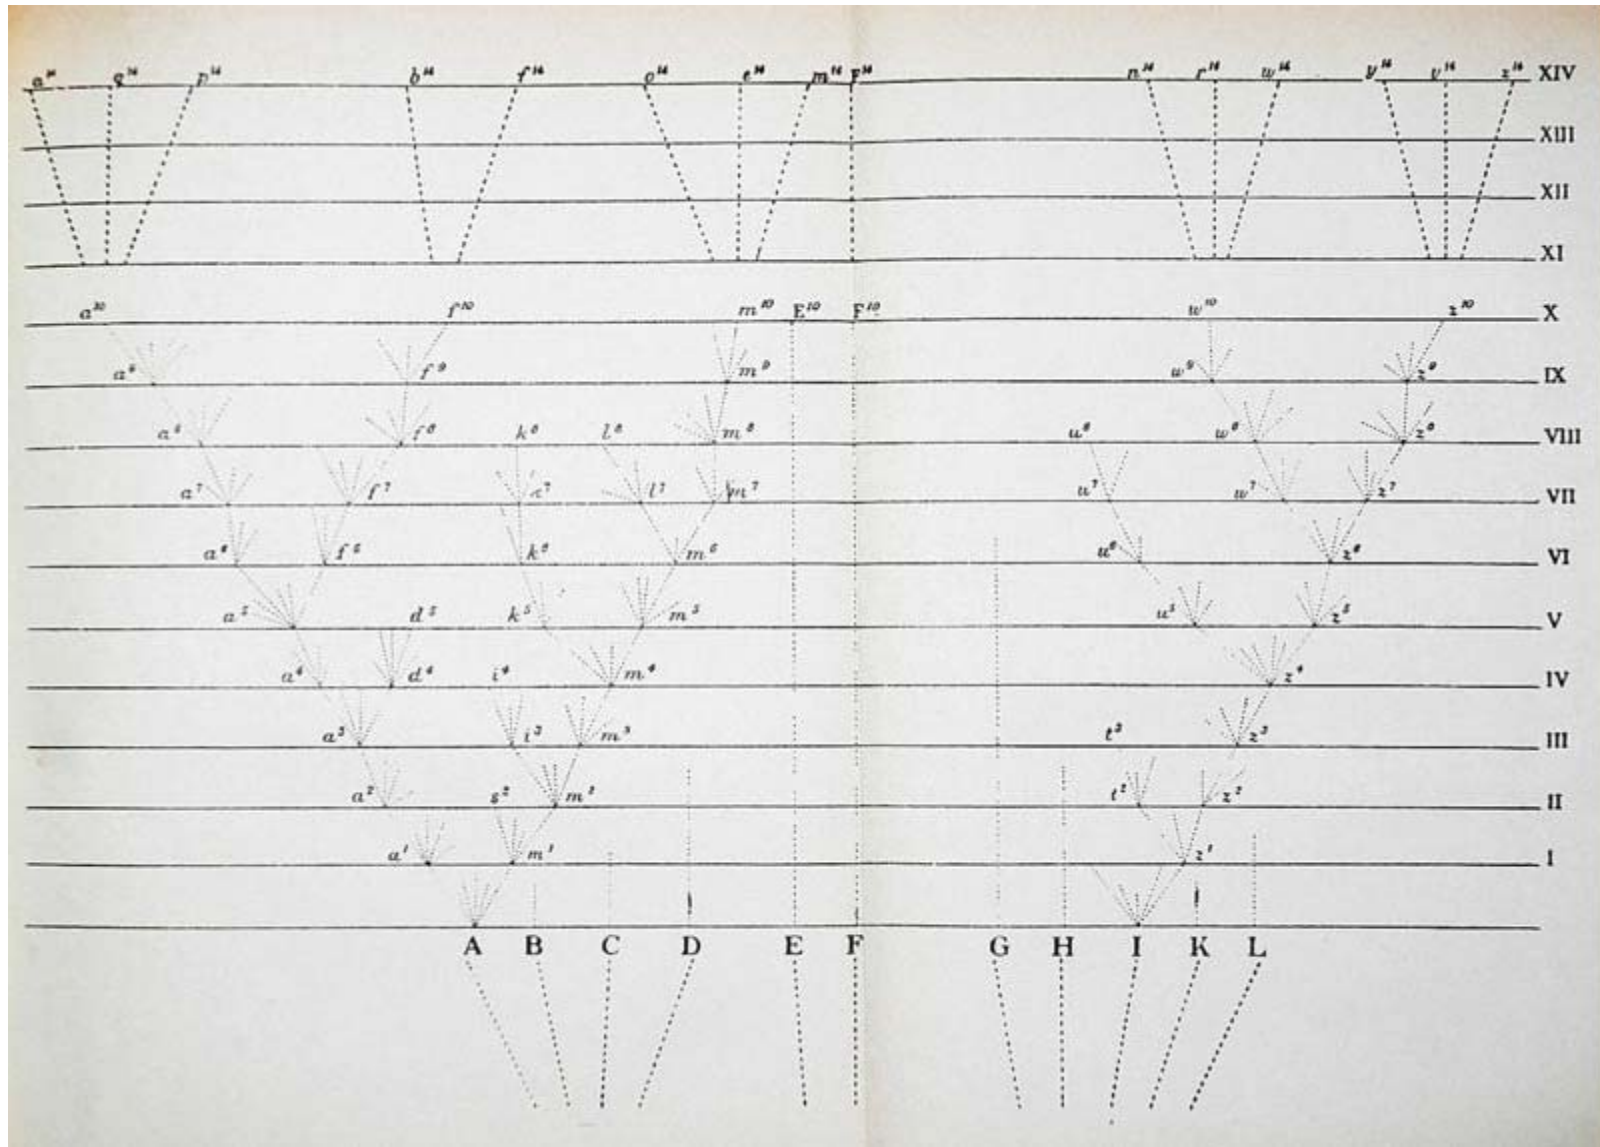 a¹⁴ q¹⁴ p¹⁴ b¹⁴ f¹⁴ o¹⁴ e¹⁴ m¹⁴ F¹⁴ n¹⁴ r¹⁴ w¹⁴ y¹⁴ v¹⁴ z¹⁴ XIV
XIII
XII
XI
a¹⁰ f¹⁰ m¹⁰ E¹⁰ F¹⁰ w¹⁰ z¹⁰ X
a⁹ f⁹ m⁹ w⁹ z⁹ IX
a⁸ f⁸ k⁸ l⁸ m⁸ u⁸ w⁸ z⁸ VIII
a⁷ f⁷ k⁷ l⁷ m⁷ u⁷ w⁷ z⁷ VII
a⁶ f⁶ k⁶ m⁶ u⁶ z⁶ VI
a⁵ d⁵ k⁵ m⁵ u⁵ z⁵ V
a⁴ d⁴ i⁴ m⁴ z⁴ IV
a³ i³ m³ t³ z³ III
a² s² m² t² z² II
a¹ m¹ z¹ I
A B C D E F G H I K L